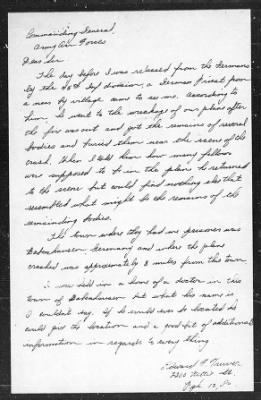 Commanding General,
Army Air Forces
Dear Sir
The day before I was released from the Germans
by the 90th Inf division, a German Priest from
a near by village came to see me. According to
him he went to the wreakage of our plane after
the fire was out and got the remains of several
bodies and buried them near the scene of the
crash. When I told him how many fellows
were supposed to be in the plane he returned
to the scene but could find nothing else that
resembled what might be the remains of the
remainding bodies.
The town where they had me prisoner was
Germany and where the plane
crashed was approximately 8 miles from this town.
I was held in a home of a doctor in this
town of but what his name is
I couldn't say. If he could ever be located he
could give the location and a good bit of additional
information in regards to every thing
Edward
St.
Pgh 12, Pa